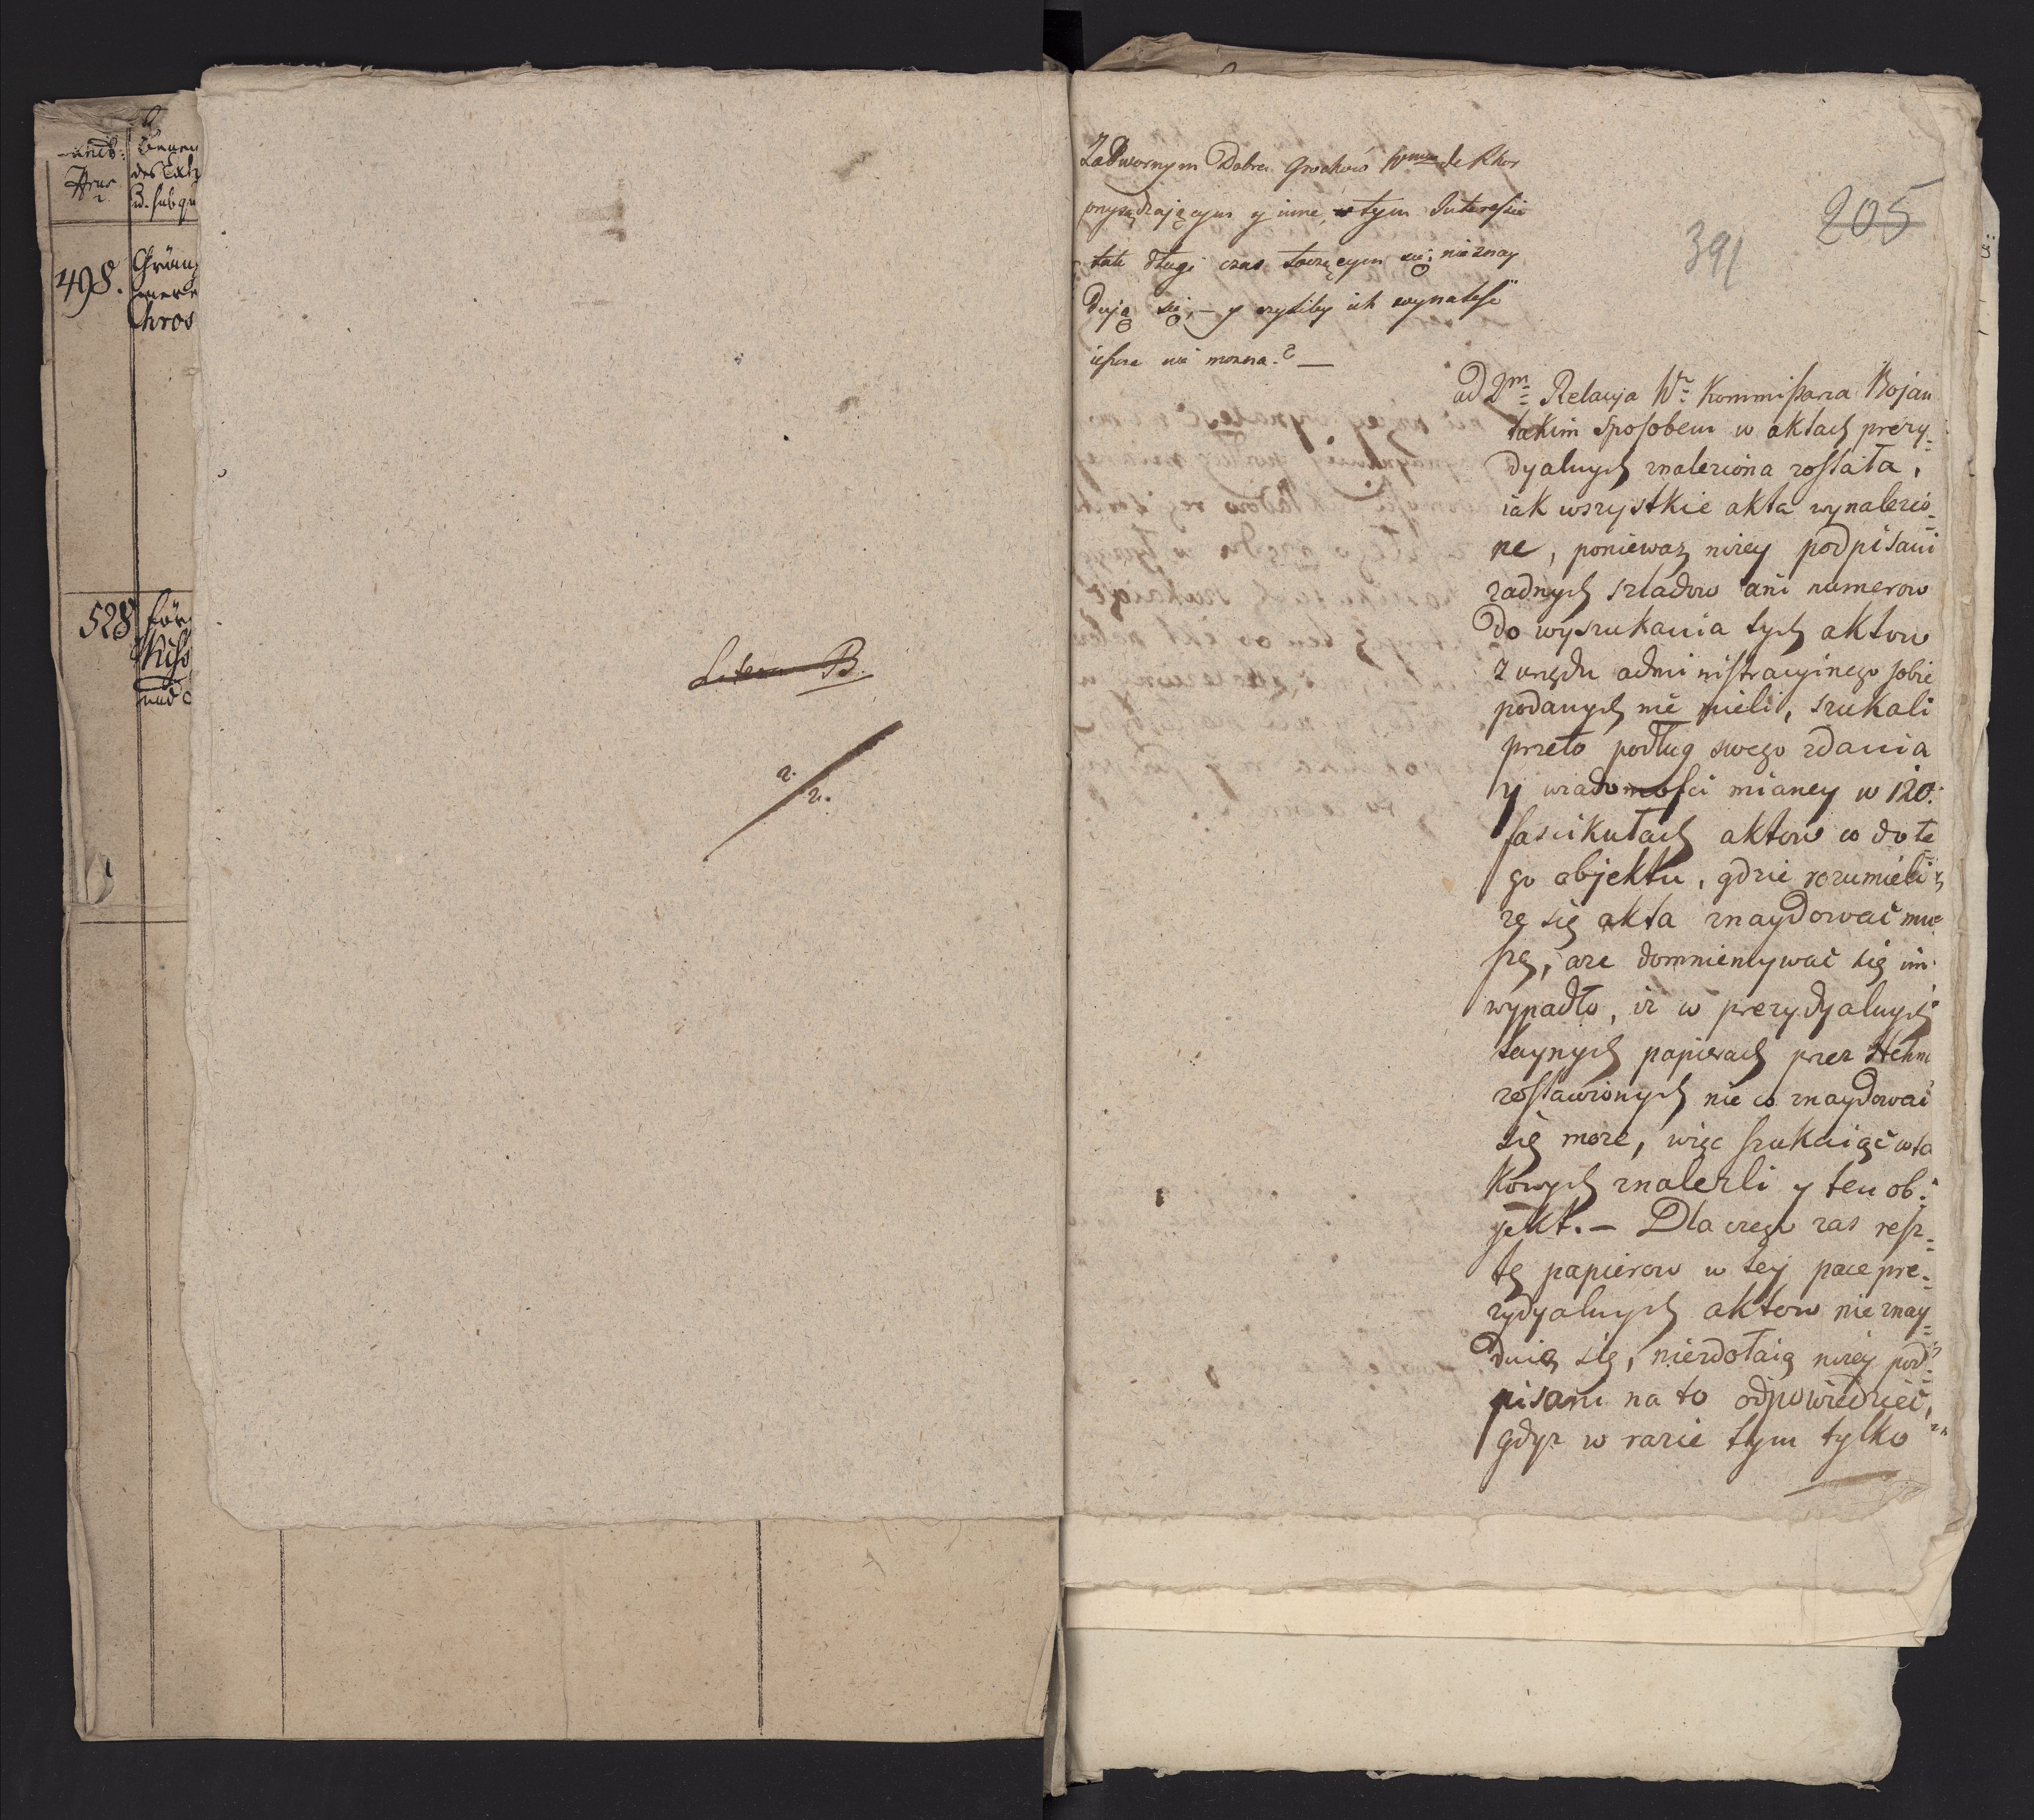 498.
528
Litera B.
2.
2.
205
391
Zadwornym Dobra Grochow de Khor
przysądzającym y inne, w tym Interessie
tak długi czas toczącym się, nieznay
dują się, – y czyliby ich wynaleść
ieszcze nie można? —
ad 2m Relacya Wo Kommissarza Bojan
takim sposobem w aktach prezy-
dyalnych znaleziona została,
iak wszystkie akta wynalezio-
ne, poniewaz nizey podpisani
zadnych szladow ani numerow
do wyszukania tych aktow
z urzędu administracyinego sobie
podanych nie mieli, szukali
przeto podług swego zdania
y wiadomości mianey w 120.
fascikułach aktow co do te
go objektu, gdzie rozumieli
zę się akta znaydować mu-
szą, aze domniemywać się im
wypadło, iz w prezydyalnych
taynych papierach przez
zostawionych nie co znaydować
się moze, więc szukaiąc w ta
kowych znalezli y ten ob-
jekt. – Dla czego zas resz-
tę papierow w tey pace pre-
zydyalnych aktow nie znay-
duią się, niezdołaią nizey pod-
pisani na to odpowiedzieć,
gdyz w razie tym tylko